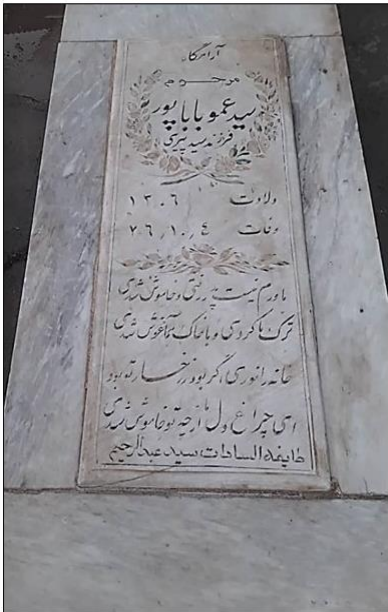 آرامگاه
مرحوم
سید عمو باباپور
فرزند سید پیری
ولادت ۱۳۰۶
وفات ۷۶٫۱۰٫۴
باورم نیست پدر رفتی و خاموش شدی
ترک ما کردی و با خاک هم آغوش شدی
خانه را نوری اگر بود ز رخسار تو بود
ای چراغ دل ما از چه تو خاموش شدی
طایفه السادات سید عبدالرحیم